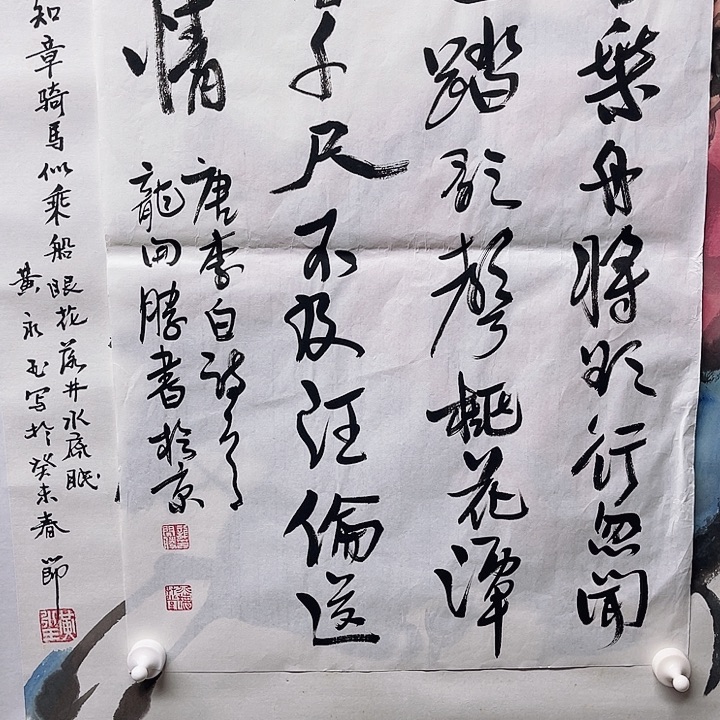 乘舟將欲行忽聞
踏歌聲桃花潭
千尺不及汪倫送
情
唐李白詩一首
龍勝書於京
知章騎馬似乘船眼花落井水底眠
黄永玉写於癸未春節